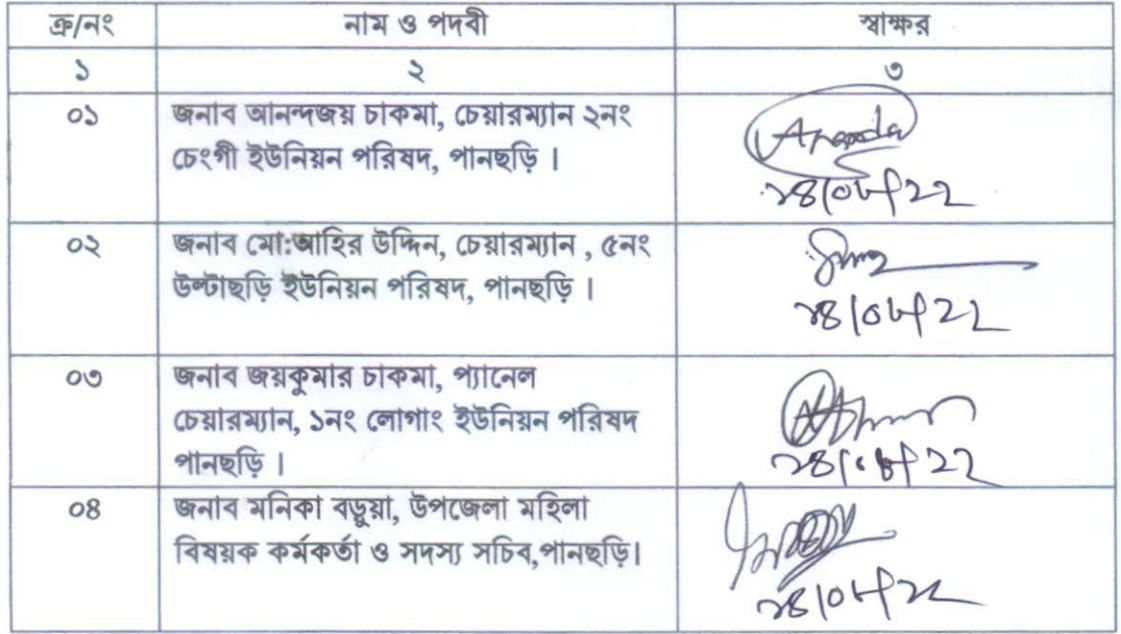 ক্র/নং নাম ও পদবী স্বাক্ষর
১ ২ ৩
০১ জনাব আনন্দজয় চাকমা, চেয়ারম্যান ২নং
চেংগী ইউনিয়ন পরিষদ, পানছড়ি ।
Ananda
০২ জনাব মো:আহির উদ্দিন, চেয়ারম্যান , ৫নং
উল্টাছড়ি ইউনিয়ন পরিষদ, পানছড়ি ।
০৩ জনাব জয়কুমার চাকমা, প্যানেল
চেয়ারম্যান, ১নং লোগাং ইউনিয়ন পরিষদ
পানছড়ি ।
০৪ জনাব মনিকা বড়ুয়া, উপজেলা মহিলা
বিষয়ক কর্মকর্তা ও সদস্য সচিব,পানছড়ি।